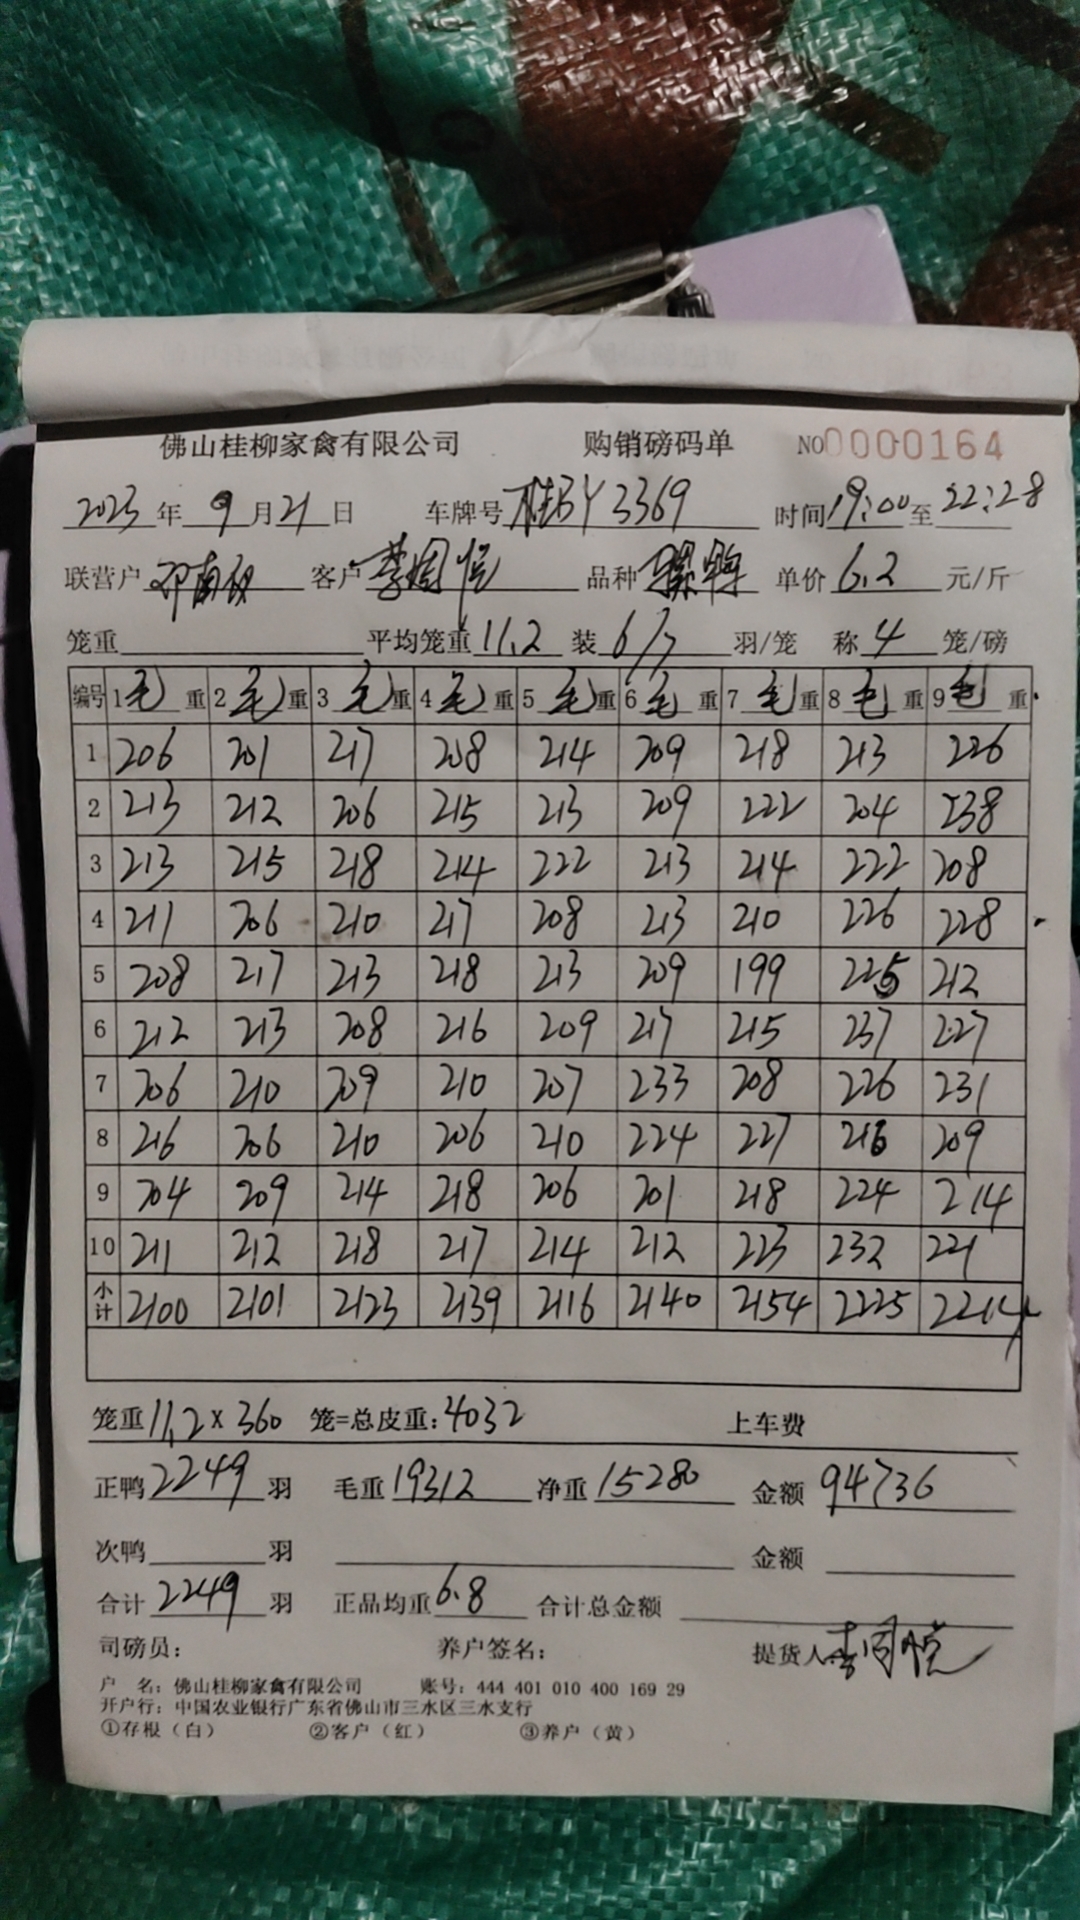 佛山桂柳家禽有限公司 购销磅码单 NO0000164
2023年 9月21日 车牌号 桂BY3369 时间19:00至22:28
联营户 客户 李周悦 品种 骡鸭 单价 6.2 元/斤
笼重 平均笼重 11.2 装 6/7 羽/笼 称 4 笼/磅
编号 1毛重 2毛重 3毛重 4毛重 5毛重 6毛重 7毛重 8毛重 9毛重
1 206 201 217 208 214 209 218 213 226
2 213 212 206 215 213 209 222 204 238
3 213 215 218 214 222 213 214 222 208
4 211 206 210 217 208 213 210 226 228
5 208 217 213 218 213 209 199 225 212
6 212 213 208 216 209 217 215 237 227
7 206 210 209 210 207 233 208 226 231
8 216 206 210 206 210 224 227 216 209
9 204 209 214 218 206 201 218 224 214
10 211 212 218 217 214 212 223 232 221
小计 2100 2101 2123 2139 2116 2140 2154 2225 2214
笼重 11.2 X 360 笼=总皮重: 4032 上车费
正鸭 2249 羽 毛重 19312 净重 15280 金额 94736
次鸭 羽 金额
合计 2249 羽 正品均重 6.8 合计总金额
司磅员: 养户签名: 提货人 李周悦
户 名: 佛山桂柳家禽有限公司 账号: 444 401 010 400 169 29
开户行: 中国农业银行广东省佛山市三水区三水支行
①存根(白) ②客户(红) ③养户(黄)